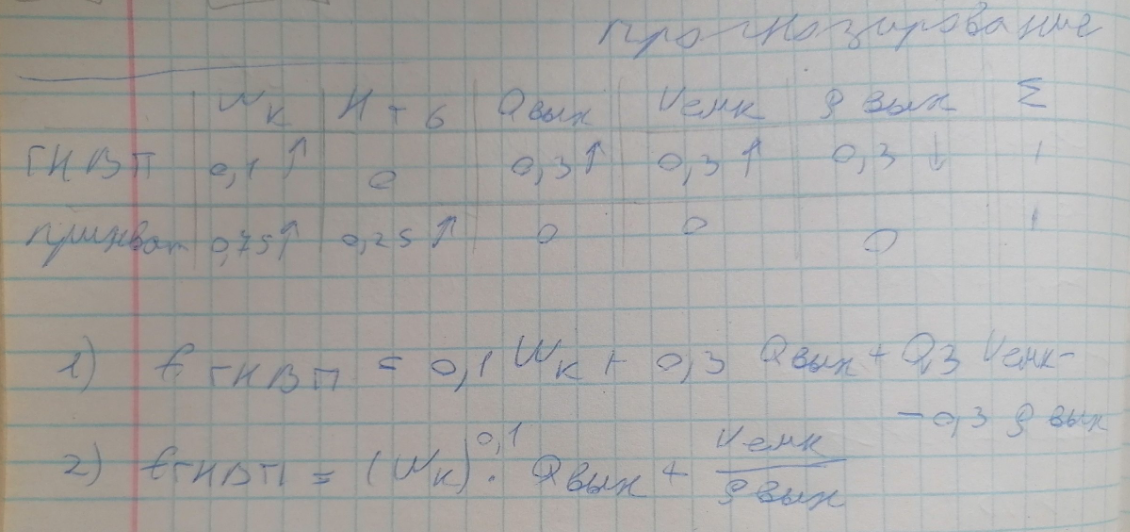 прогнозирование
Wк Hтб Qвых Vемк ρвых Σ
ГНВП 0,1↑ 0 0,3↑ 0,3↑ 0,3↓ 1
прихват 0,75↑ 0,25↑ 0 0 0 1
1) fГНВП = 0,1 Wк + 0,3 Qвых + 0,3 Vемк-
- 0,3 ρвых
2) fГНВП = (Wк)^0,1 · Qвых + Vемк/ρвых